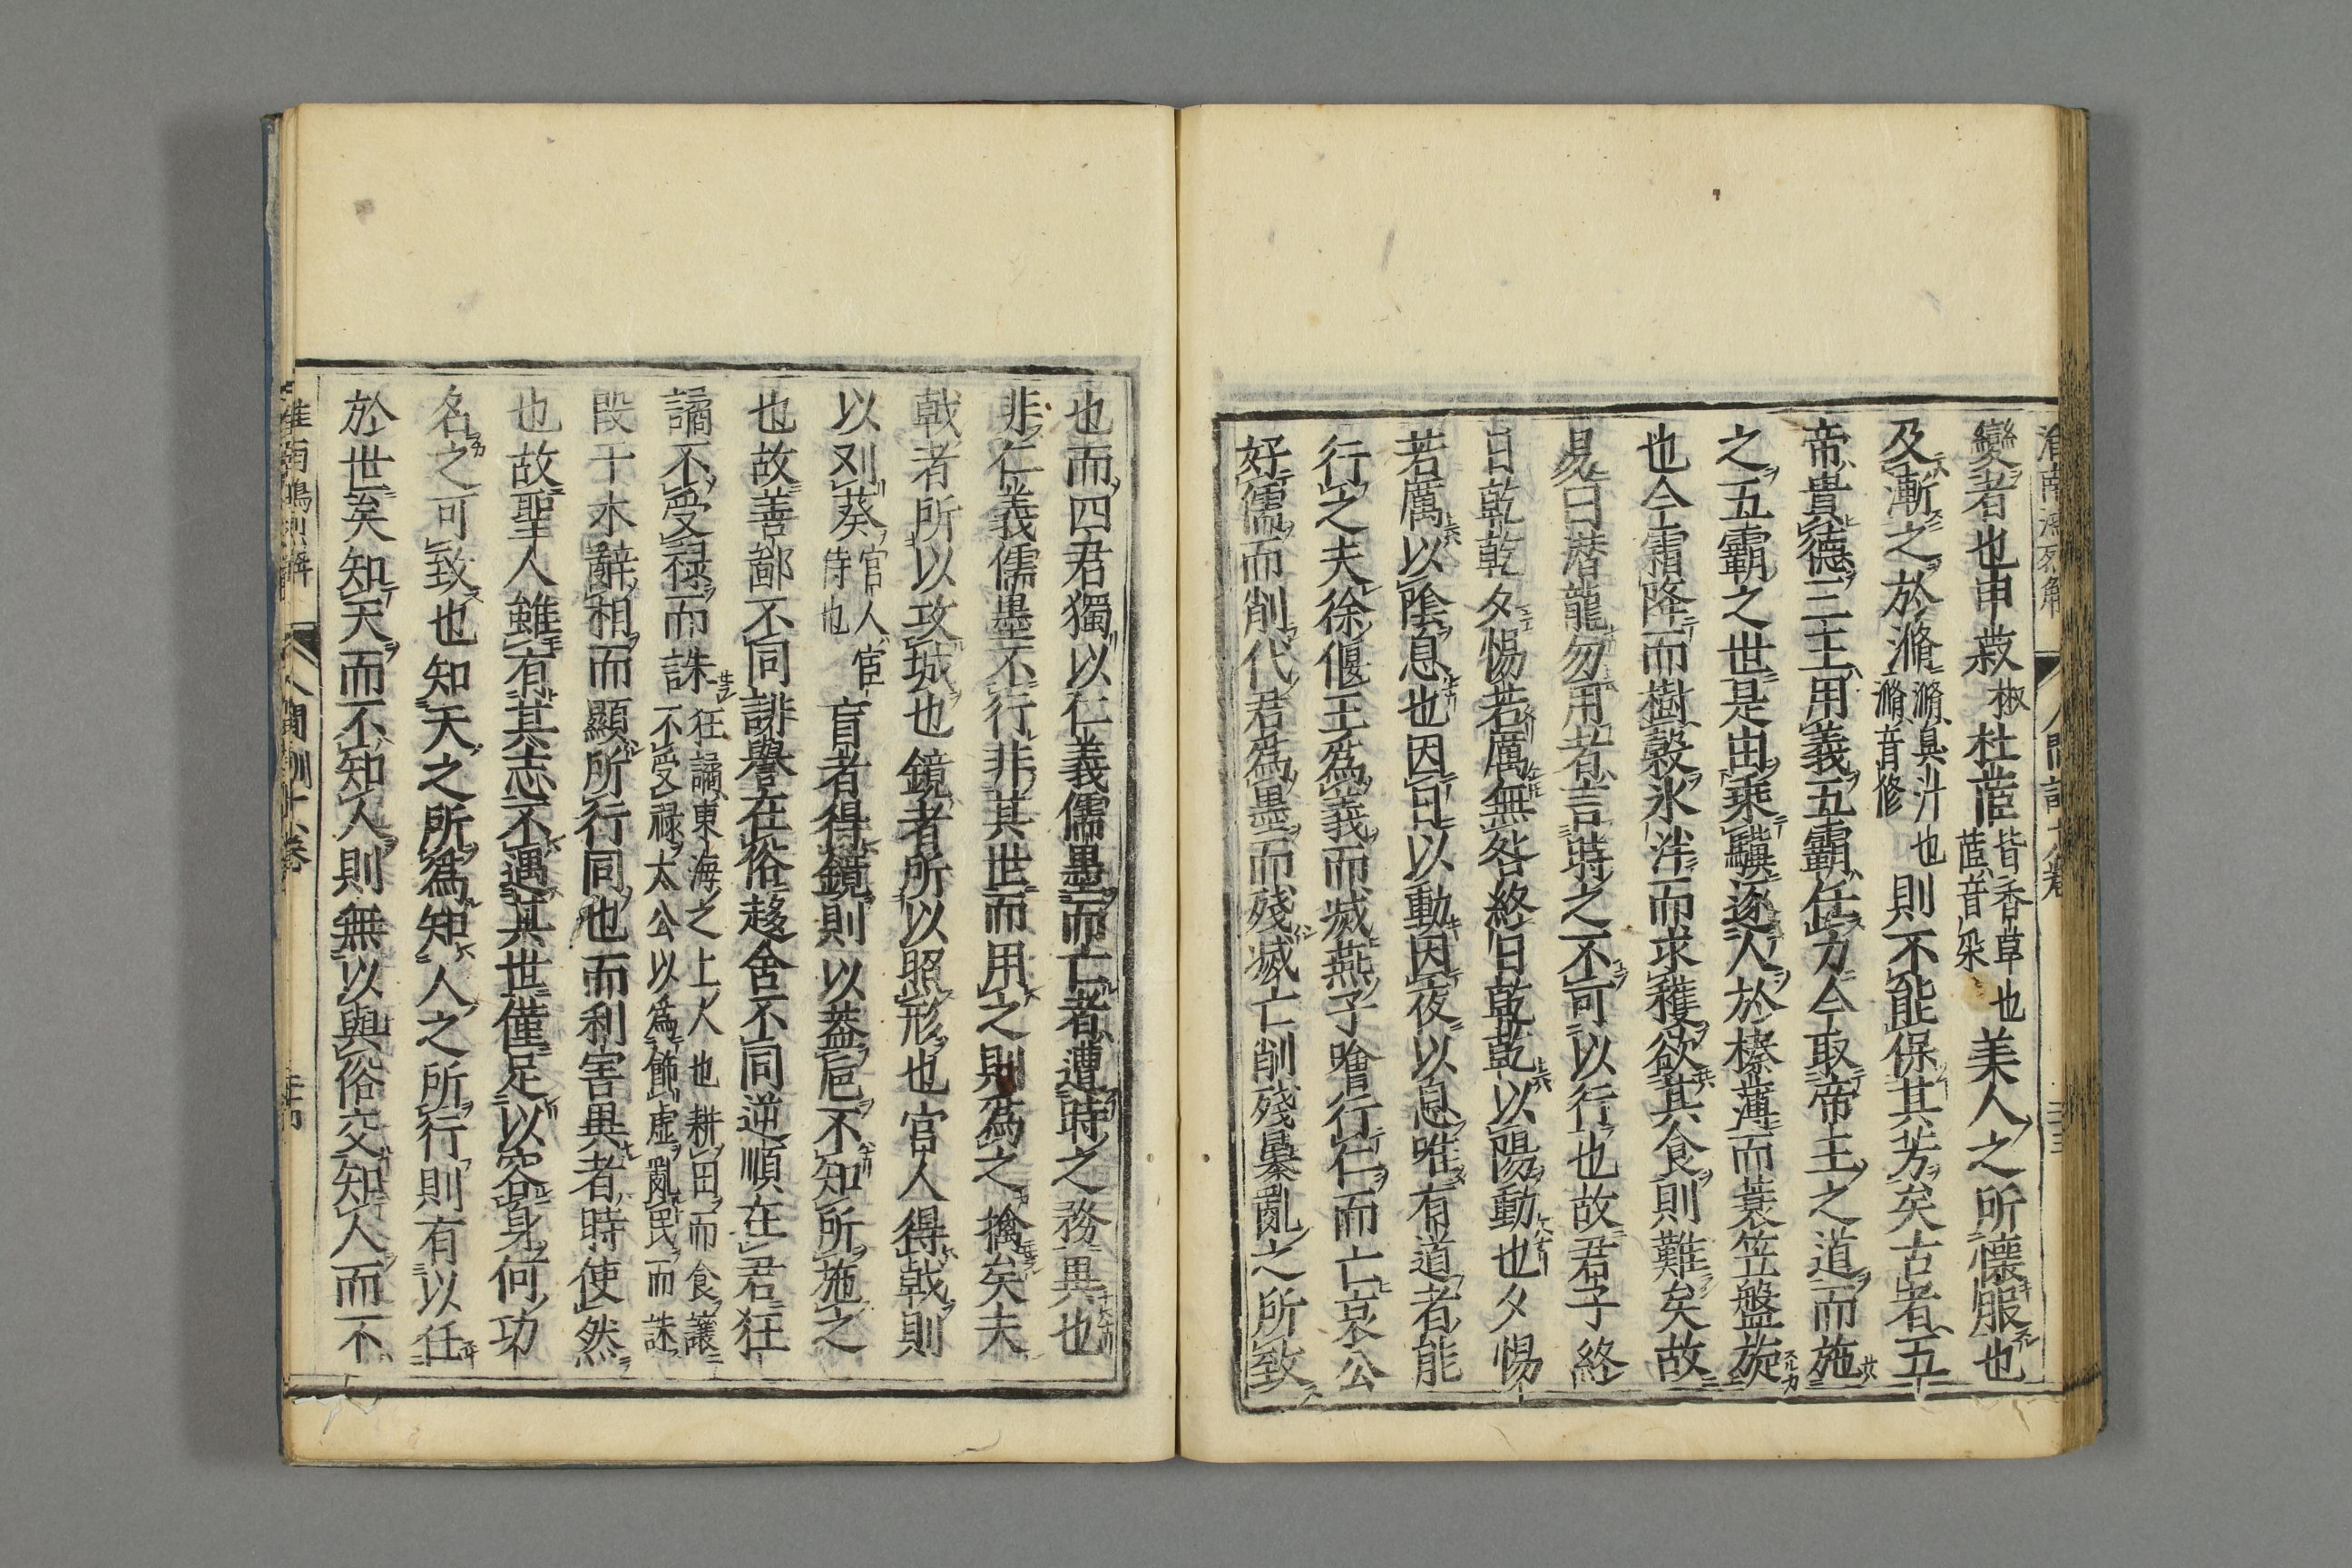 變者也申菽椒杜茝皆香草也茝音采美人之所懷服也
及漸之於滫滫臭汁也滫音修則不能保其芳矣古者五
帝貴德三王用義五霸任力今取帝王之道而施
之五霸之世是由乘驥逐人於榛薄而蓑笠盤旋
也今霜降而樹穀氷泮而求穫欲其食則難矣故
易曰潛龍勿用者言時之不可以行也故君子終
日乾乾夕惕若厲無咎終日乾乾以陽動也夕惕
若厲以陰息也因日以動因夜以息唯有道者能
行之夫徐偃王爲義而滅燕子噲行仁而亡哀公
好儒而削代君爲墨而殘滅亡削殘暴亂之所致
也而四君獨以仁義儒墨而亡者遭時之務異也
非仁義儒墨不行非其世而用之則爲之擒矣夫
戟者所以攻城也鏡者所以照形也官人得戟則
以刈葵官人宦侍也盲者得鏡則以蓋巵不知所施之
也故善鄙不同誹譽在俗趍舍不同逆順在君狂
譎不受祿而誅狂譎東海之上人也耕田而食讓不受祿太公以爲飾虛亂民而誅
段干木辭相而顯所行同也而利害異者時使然
也故聖人雖有其志不遇其世僅足以容身何功
名之可致也知天之所爲知人之所行則有以任
於世矣知天而不知人則無以與俗交知人而不
人間訓 卷